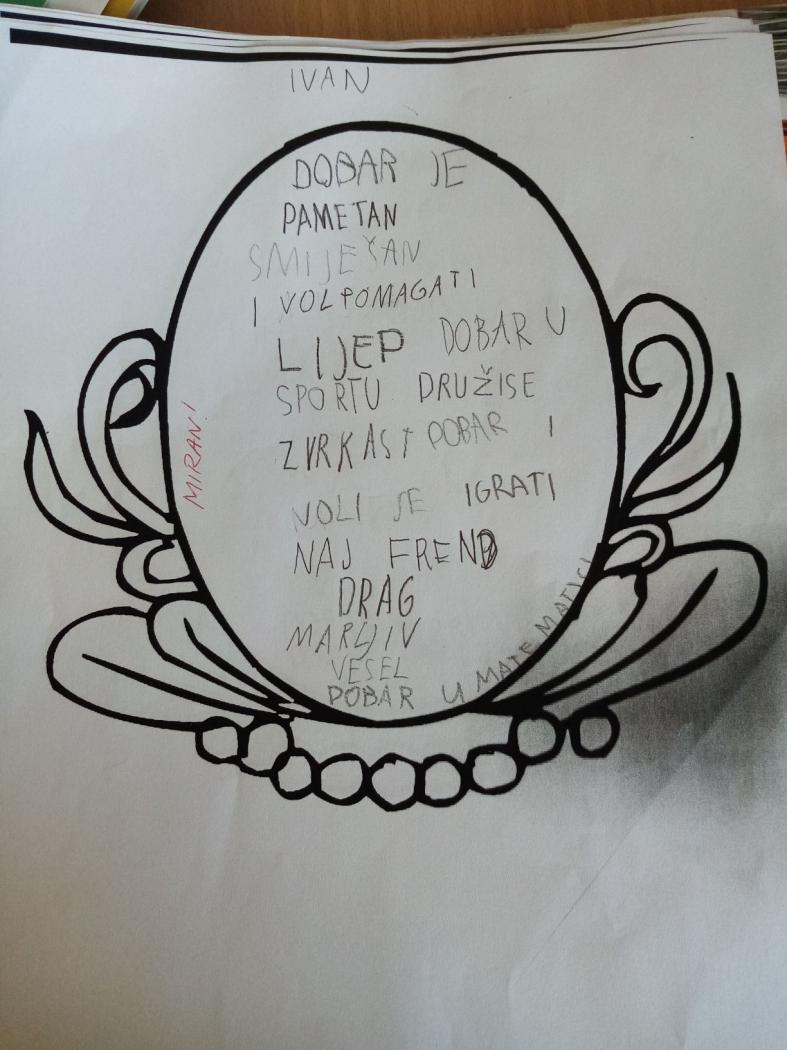 IVAN
DOBAR JE
PAMETAN
SMIJEŠAN
I VOLPOMAGATI
LIJEP DOBAR U
SPORTU DRUŽISE
ZVRKAST DOBAR I
VOLI SE IGRATI
NAJ FREND
DRAG
MARLJIV
VESEL
DOBAR U MATEMATICI
MIRAN!